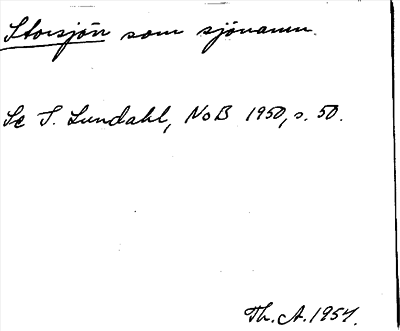 Storsjön som sjönamn.
Se I. Lundahl, NoB 1950, s. 50.
Th. A. 1954.